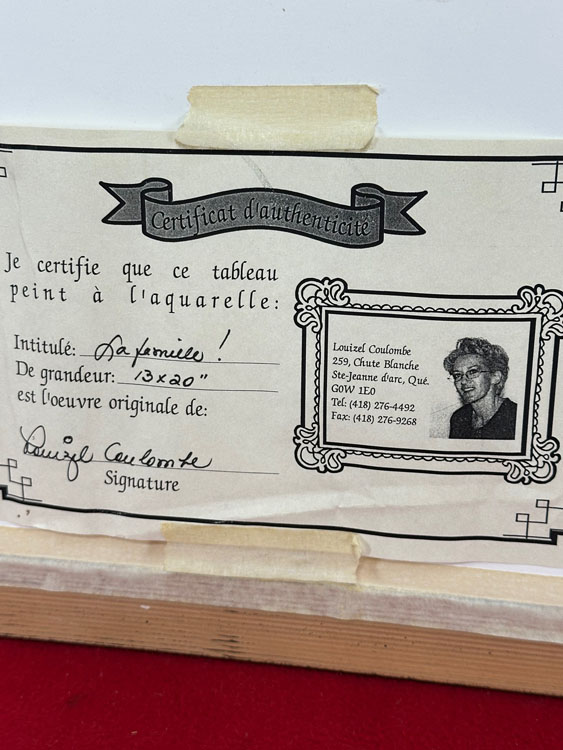 Certificat d'authenticité
Je certifie que ce tableau
peint à l'aquarelle:
Intitulé: La famille !
De grandeur: 13x20"
est l'oeuvre originale de:
Louizel Coulombe
Signature
Louizel Coulombe
259, Chute Blanche
Ste-Jeanne d'arc, Qué.
G0W 1E0
Tel: (418) 276-4492
Fax: (418) 276-9268